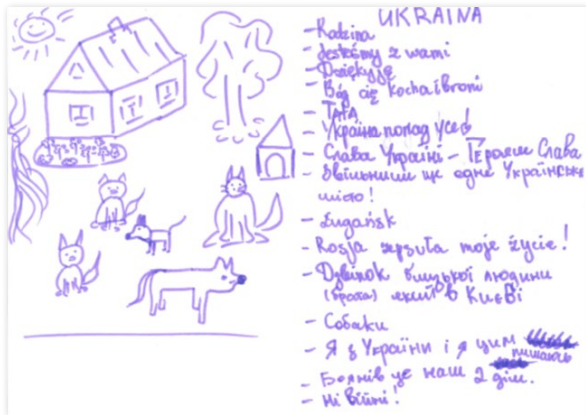 UKRAINA
- Rodzina
- Jesteśmy z wami
- Dziękuję
- Bóg cię kocha i broni
- Тата
- Україна понад усе!
- Слава Україні - Героям Слава
- Звільнили ще одне Українське
місто!
- Ługańsk
- Rosja zepsuła moje życie!
- Дзвінок близької людини
(брата) який в Києві
- Собаки
- Я з України і я цим
пишаюсь
- це наш 2 дім.
- Ні війні!